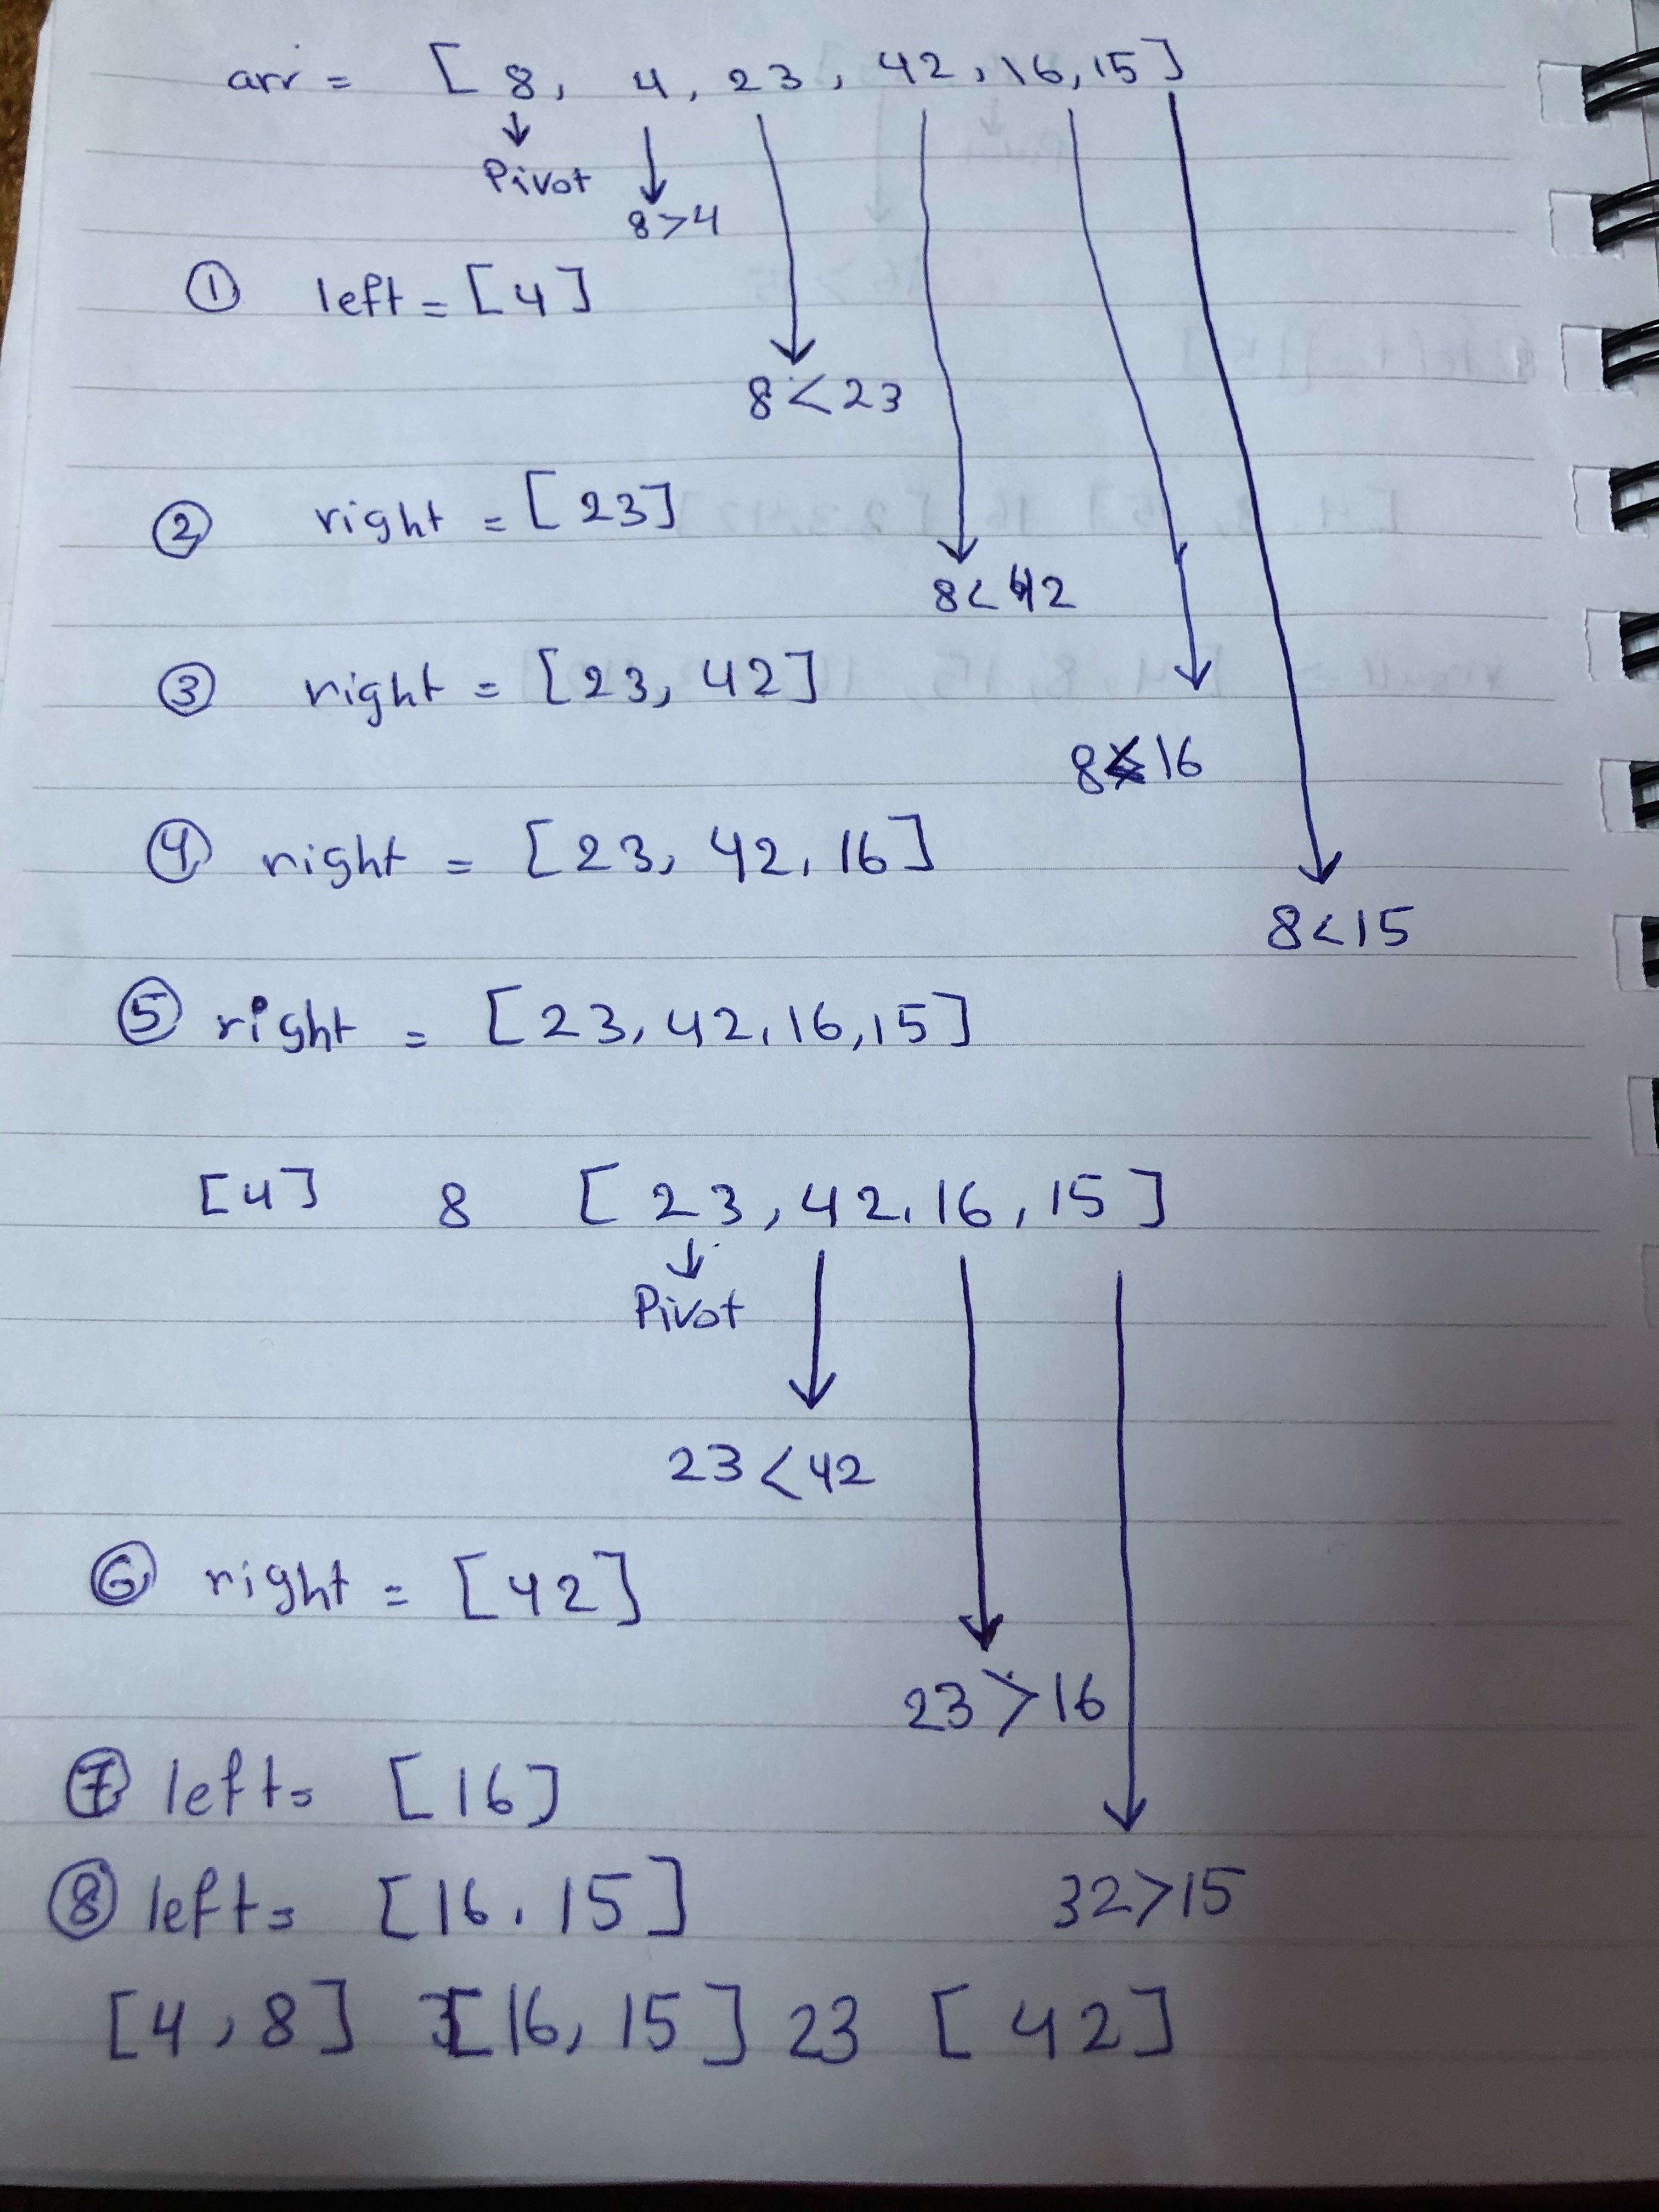 arr = [ 8, 4, 23, 42, 16, 15 ]
Pivot
8>4
① left = [4]
8<23
② right = [23]
8<42
③ right = [23, 42]
8<16
④ right = [23, 42, 16]
8<15
⑤ right = [23, 42, 16, 15]
[4] 8 [ 23, 42, 16, 15 ]
Pivot
23<42
⑥ right = [42]
23>16
⑦ left= [16]
32>15
⑧ left= [16, 15]
[4, 8] [16, 15] 23 [ 42 ]